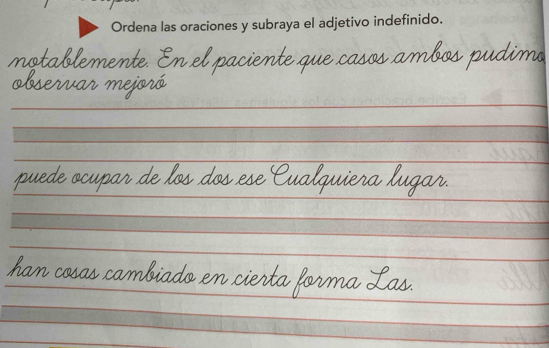 Ordena las oraciones y subraya el adjetivo indefinido.
notablemente. En el paciente que casos ambos pudimo
observar mejoró
puede ocupar de los dos ese Cualquiera lugar.
han cosas cambiado en cierta forma Las.